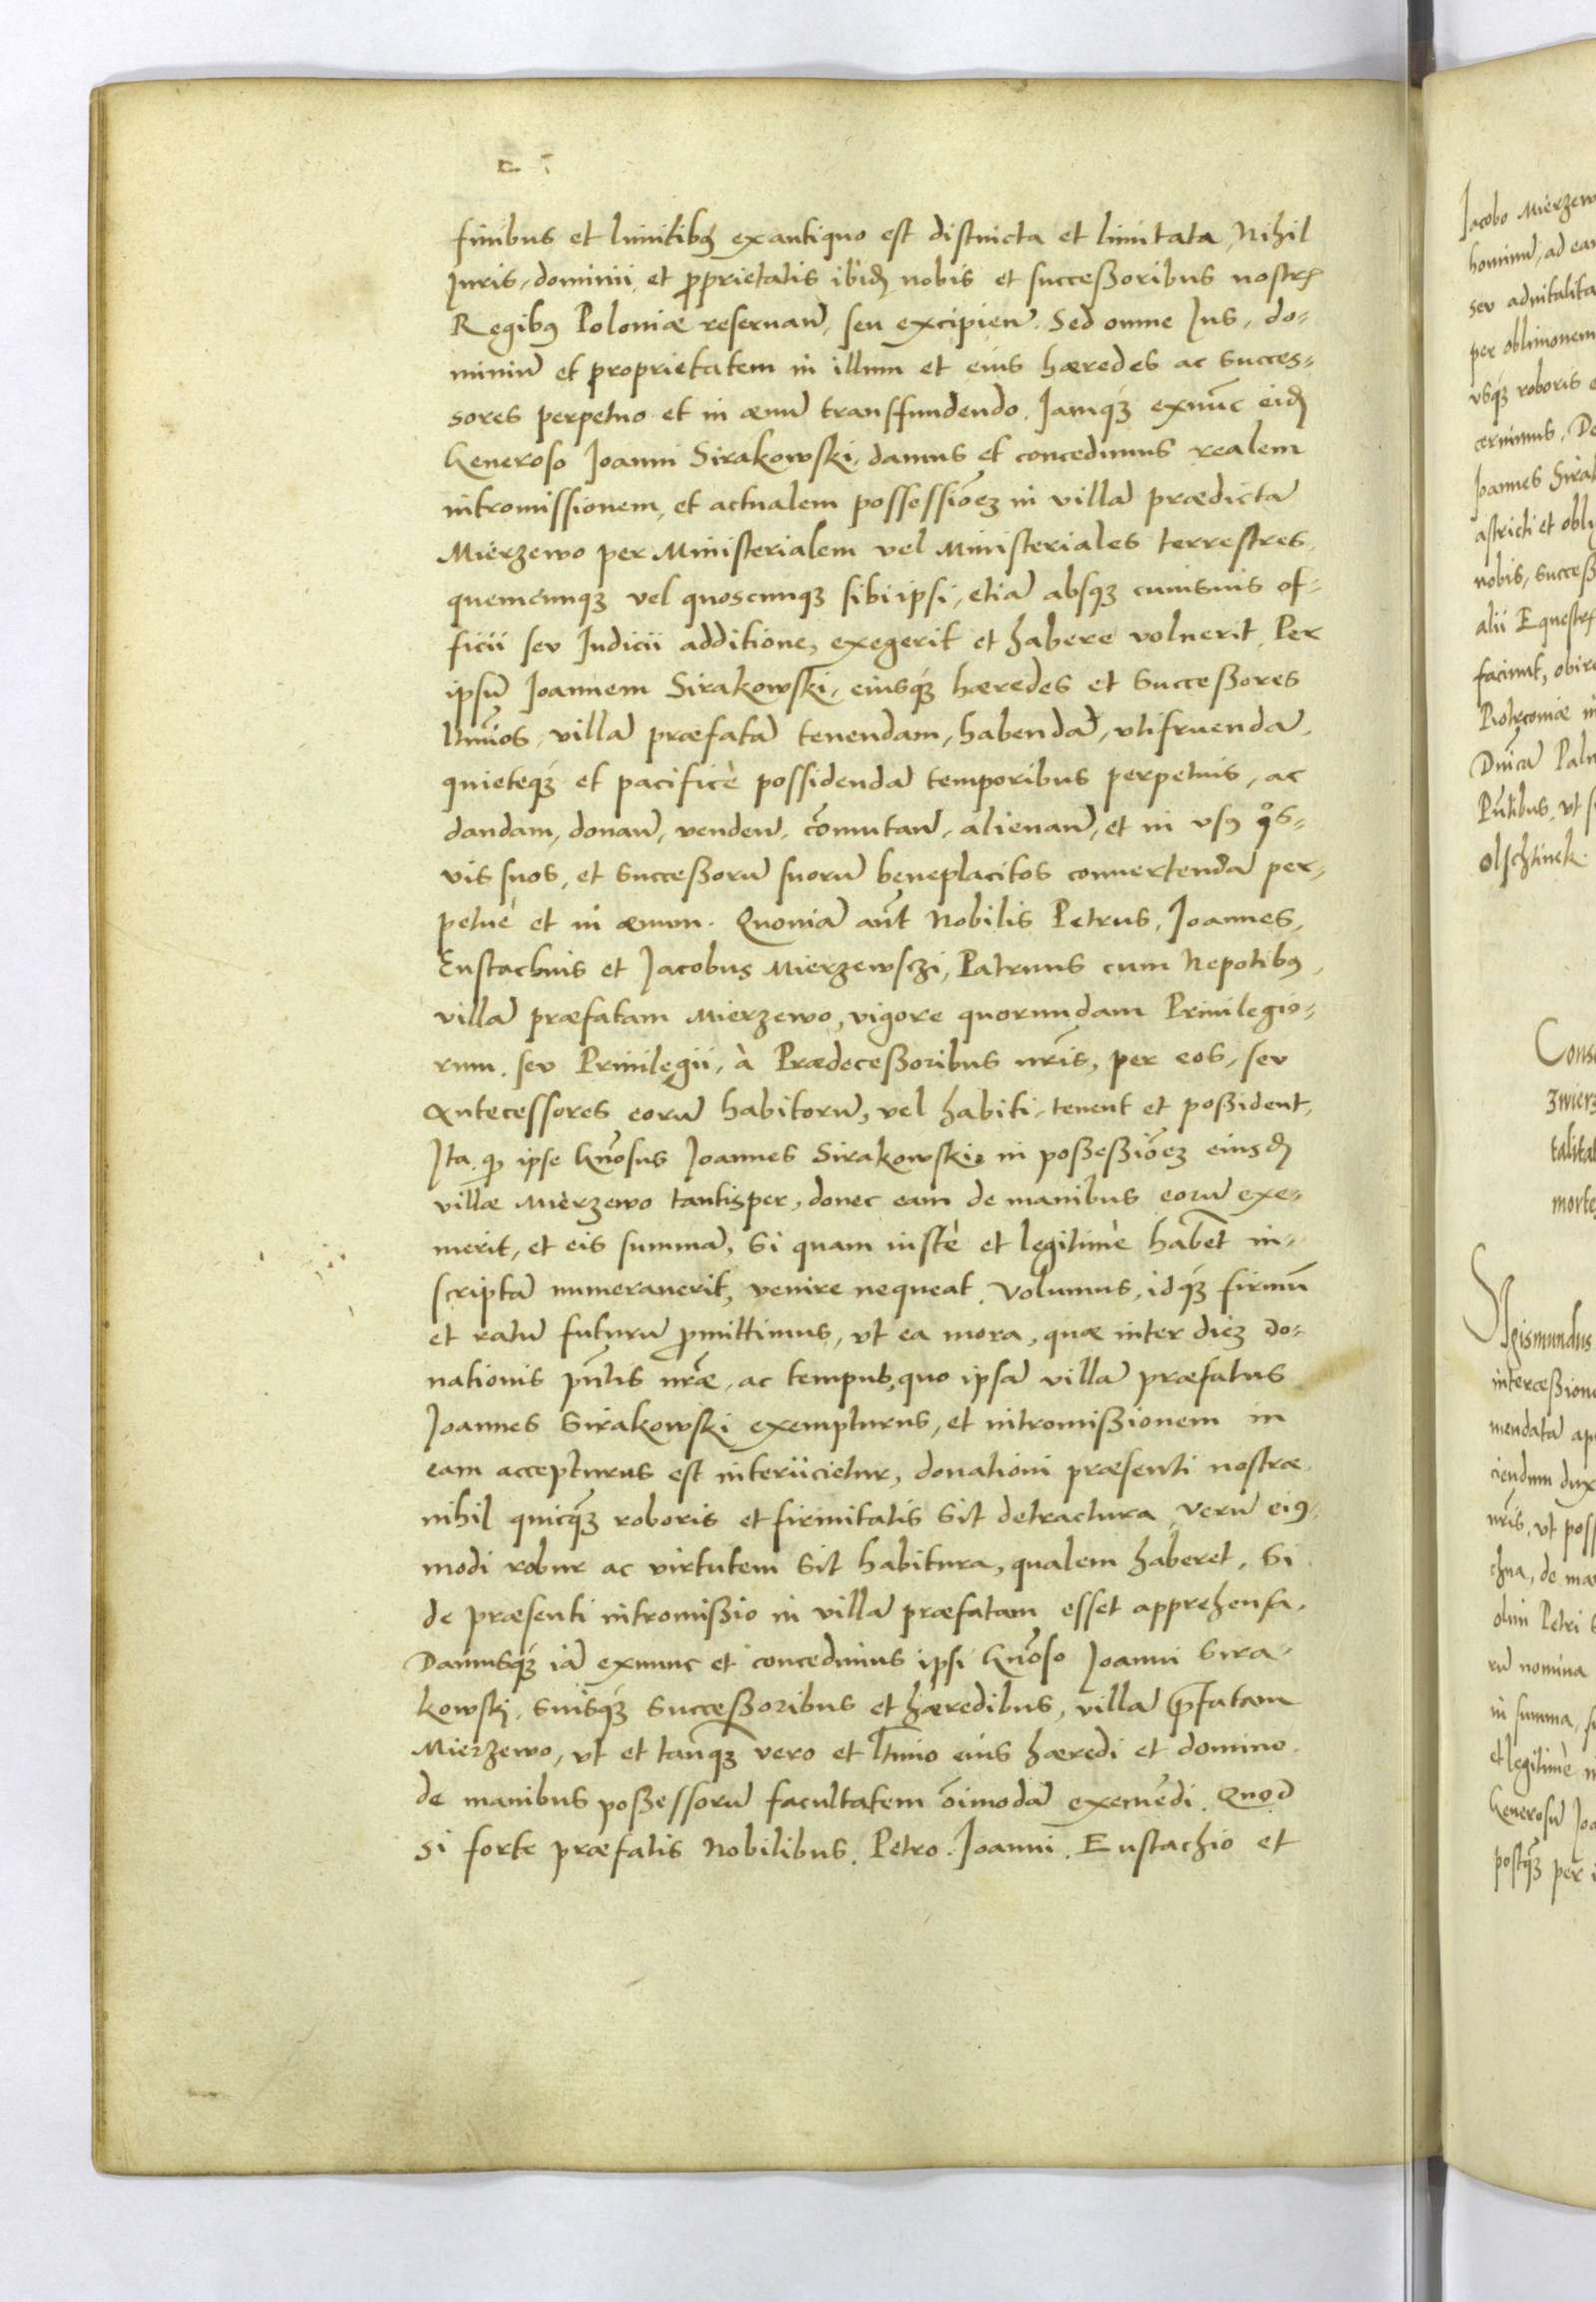 finibus et limitib⁹ ex antiquo est distincta et limitata, Nihil
Juris, dominii, et ꝓprietatis ibid. nobis et succeßoribus nostr̄
Regib⁹ Poloniæ reseruan̄, seu excipien̄. Sed omne Jus, do=
miniū et proprietatem in illum et eius hæredes ac succes=
sores perpetuo et in æuū transffundendo. Jamqȝ exnūc eid.
Generoso Joanni Sirakowski, damus et concedimus realem
intromissionem, et actualem possessiōeȝ in villā prædictā
Mierzewo per Ministerialem vel Ministeriales terrestres,
quemcunqȝ vel quoscunqȝ sibi ipsi, etiā absqȝ cuiusuis of=
ficii seu Judicii additione, exegerit et habere voluerit. Per
ipsū Joannem Sirakowski, eiusqȝ hæredes et succeßores
ltimōs, villā præfatā tenendam, habendā, vtifruendā,
quieteqȝ et pacificè possidendā temporibus perpetuis, ac
dandam, donan̄, venden̄, cōmutan̄, alienan̄, et in vs⁹ qᵒs=
vis suos, et succeßorū suorū beneplacitos conuertendā per=
petuè et in æuum. Quoniā aūt Nobilis Petrus, Joannes,
Eustachius et Jacobus Mierzewsczi, Patruus cum Nepotib⁹,
villā præfatam Mierzewo, vigore quorundam Priuilegio=
rum, seu Priuilegii, à Prædeceßoribus nr̄is, per eos, seu
Antecessores eorū habitorū, vel habiti, tenent et poßident,
Ita ꝙ ipse Gnōsus Joannes Sirakowski, in poßeßiōeȝ eiusd.
villæ Mierzewo tantisper, donec eam de manibus eorū exe=
merit, et eis summā, si quam iustè et legitimè habēt in=
scriptā numerauerit, venire nequeat. Volumus, idqȝ firmū
et ratū futurū ꝓmittimus, vt ea mora, quæ inter dieȝ do=
nationis pn̄tis nr̄æ, ac tempus, quo ipsā villā præfatus
Joannes Sirakowski exempturus, et intromißionem in
eam accepturus est interiicietur, donationi præsenti nostræ
nihil quicqȝ roboris et firmitatis sit detractura, verū ei⁹=
modi robur ac virtutem sit habitura, qualem haberet, si
de præsenti intromißio in villā præfatam esset apprehensa.
Damusqȝ iā exnunc et concedimus ipsi Gnōso Joanni Sira=
kowski, suisqȝ succeßoribus et hæredibus, villā p̄fatam
Mierzewo, vt et tanqȝ vero et ltimo eius hæredi et domino
de manibus poßessorū facultatem ōimodā exemēdi. Quod
si forte præfatis Nobilibus, Petro, Joanni, Eustachio et
Jacobo Mierzew
hominū, ad ea
seu aduitalita
per oblinonem
vsqȝ roboris e
cernimus. De
Joannes Sirak
astricti et obli
nobis, succeß
alii Equestr̄
faciunt, obire
Piotrconiæ in
Dnicā Palm
Pn̄tibus, vt
Olschtinek.
Conse
zwierz
talitat
morte
Sigismundus
interceßione
mendatā ap
ciendum dux
nr̄is, vt poss
chna, de ma
olim Petri S
rū nomina
in summa, s
et legitimè n
Generosū Joa
postqȝ per i